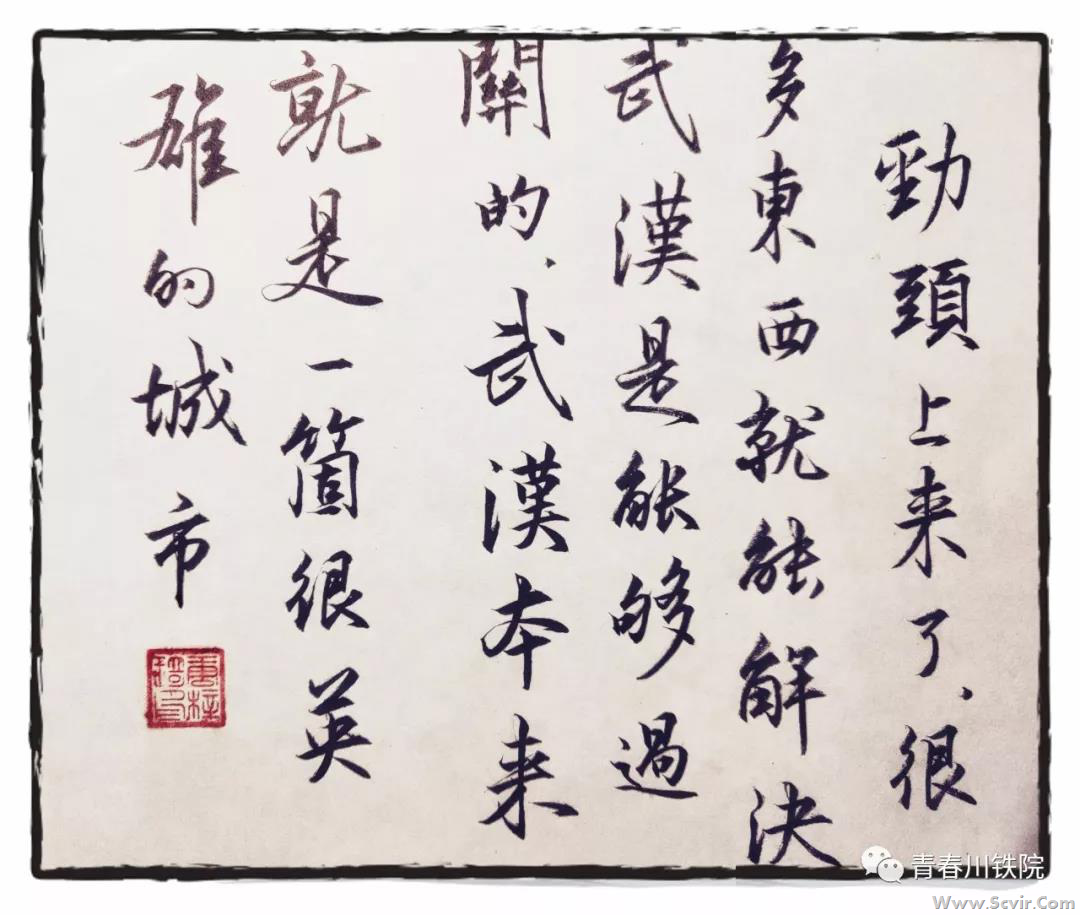 勁頭上来了、很
多東西就能解決
武漢是能够過
關的.武漢本来
就是一箇很英
雄的城市
青春川铁院
Www.Scvir.Com